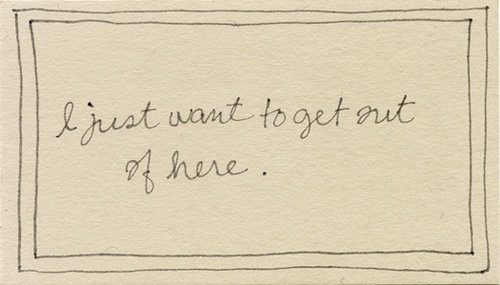 I just want to get out
of here.